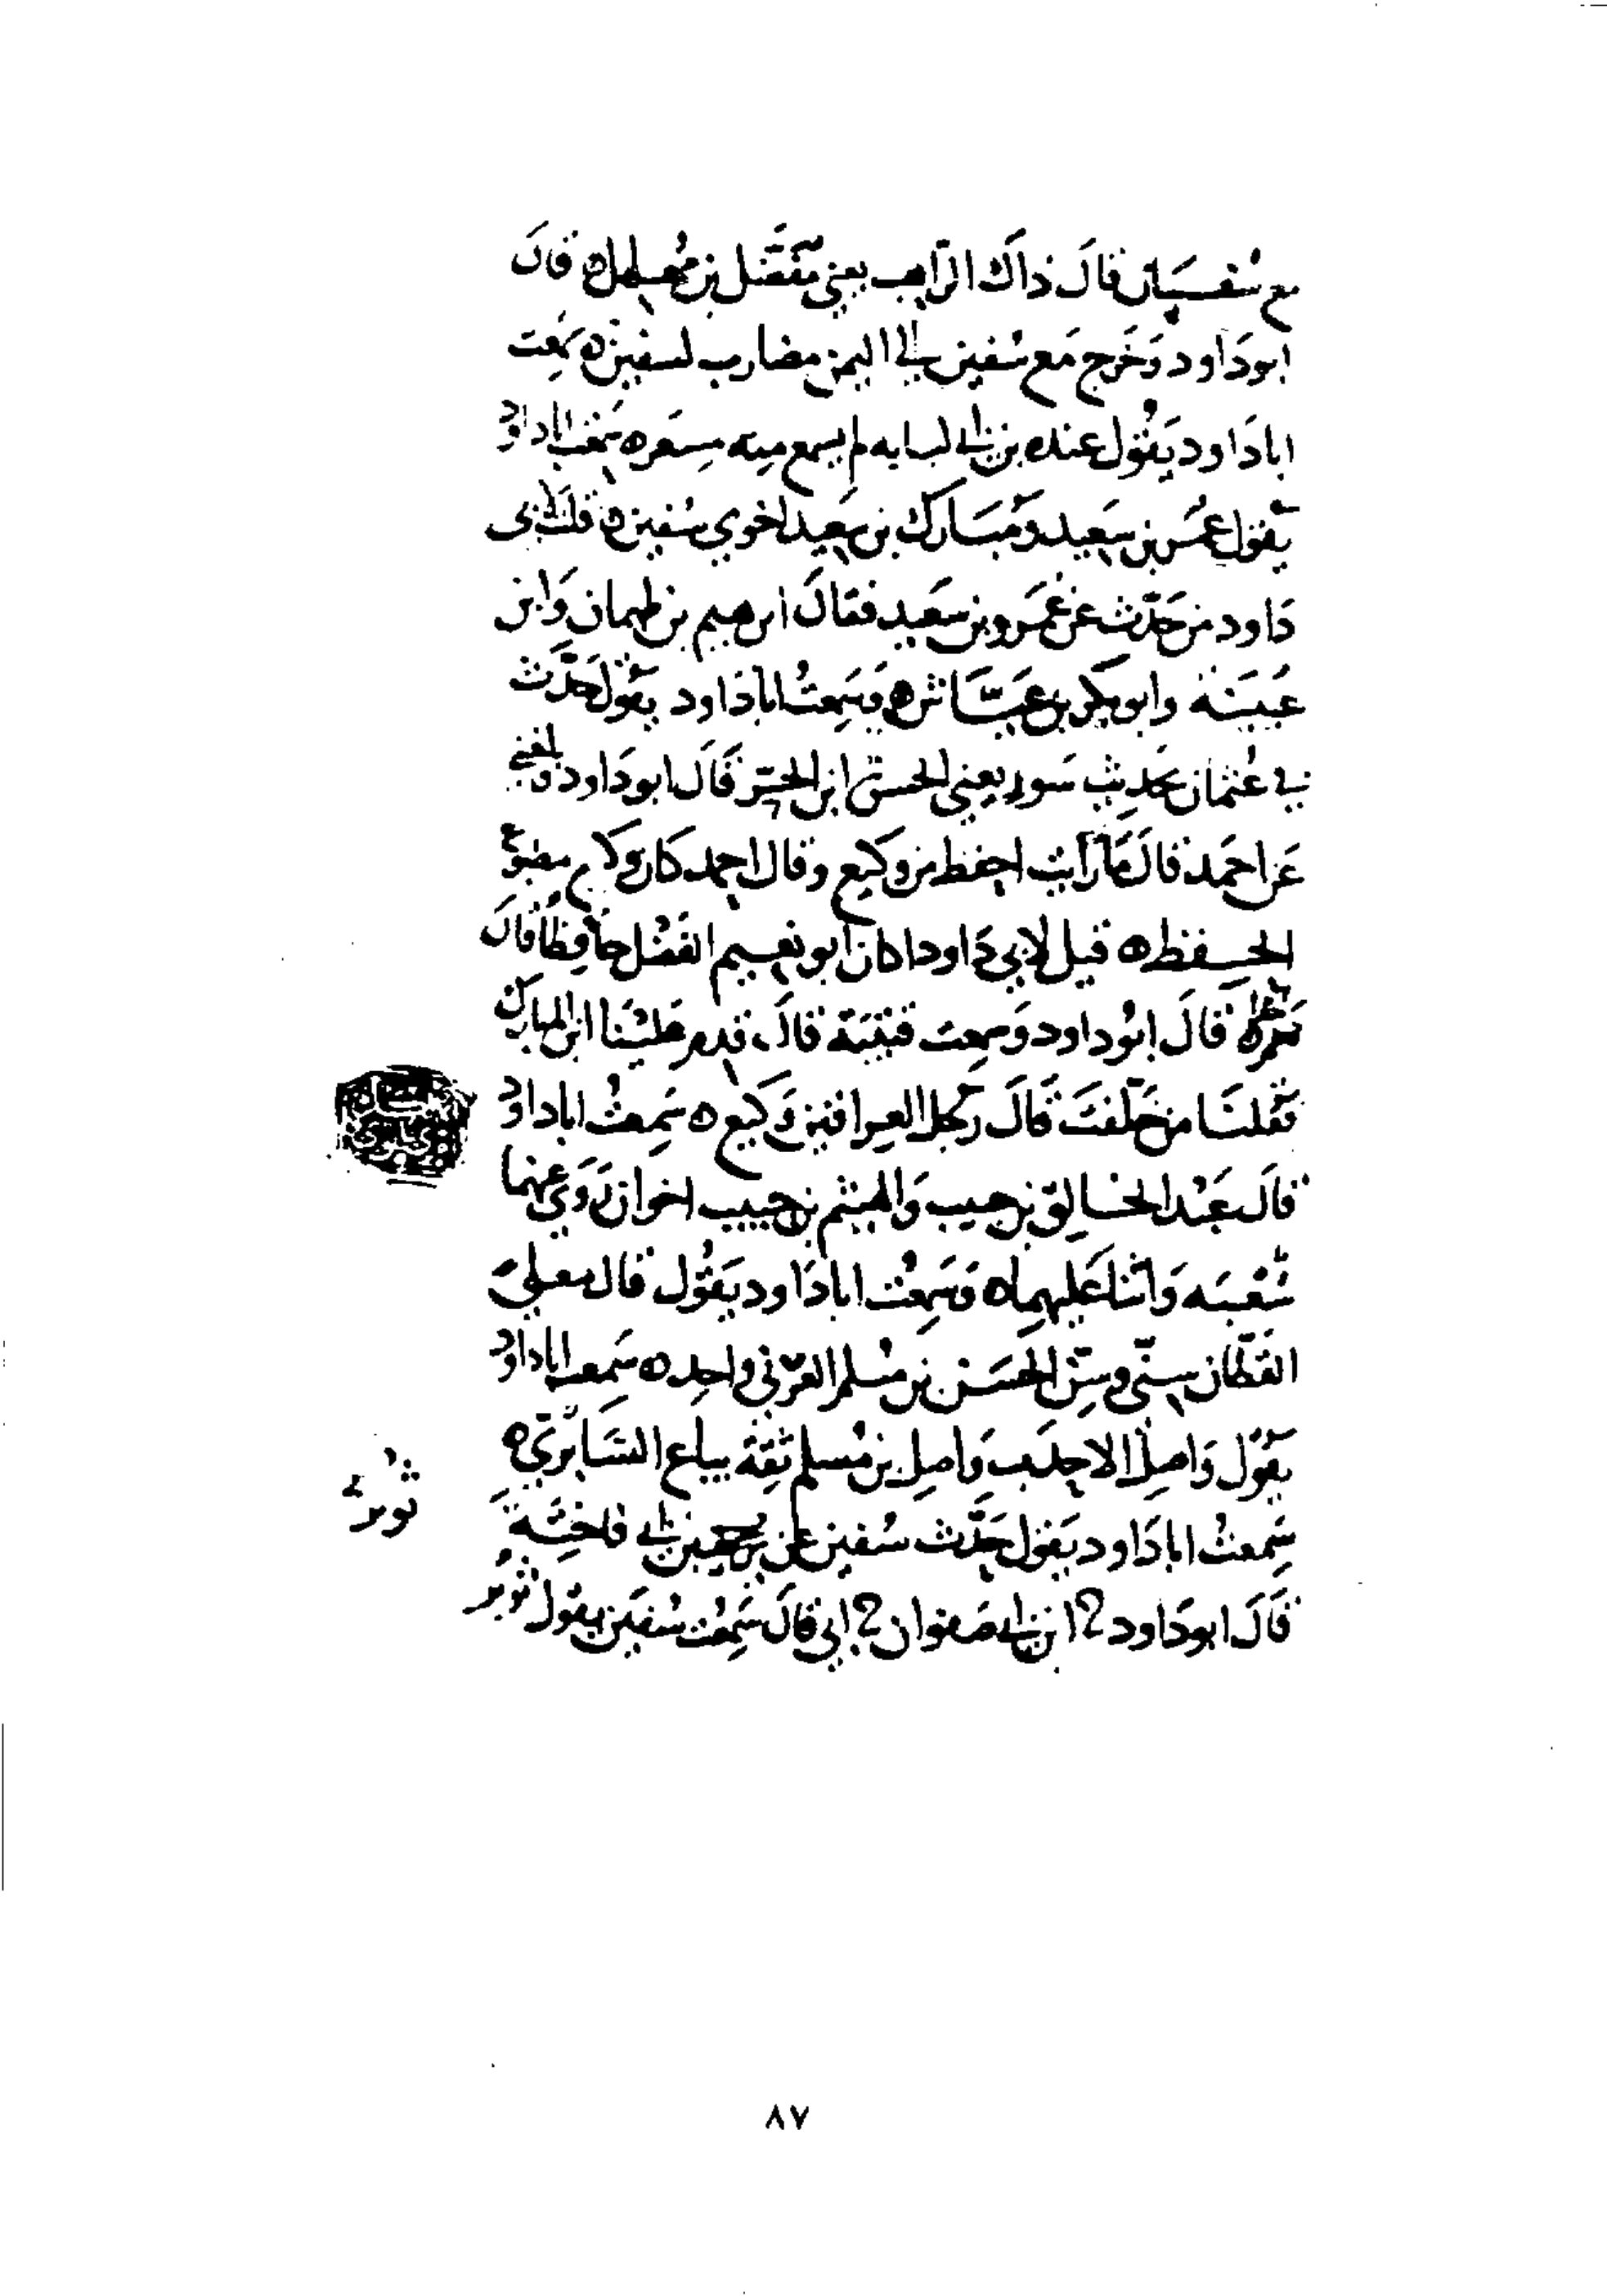 مع سُفيان قالَ ذاكَ الرّاهب يعني مُفَضَّل بن مُهلهل ه قالَ
ابو دَاود وَخَرج مَع سُفين الى اليمن مضارب لسفين ه سَمِعت
ابا دَاود يَقُول عبده بن ابي لبابه لم يسمع منه مِسعَر ه سَمعت ابا داود
يَقُول عُمَر بن سَعِيد وَمُبَارَك بن سَعيد اخوي سُفين ه قلت لابى
دَاود من حَدّث عن عُمَر بن سَعيد فقالَ ابرهيم بن طهمان وَابن
عُيَينَة وابو بكر بن عَيَّاش ه وَسَمِعتُ ابا دَاود يَقُول حَدَّث
عُثمان بحَدِيث سَوء يعني الحسن ابن الحر قَالَ ابو دَاود بلغني
عَن احمَد قالَ مَا رَأيت احفظ من وكيع وقال احمد كان وكيع مطبوع
الحِفظ ه قيل لابي دَاود اكان ابو نعيم الفَضْل حَافِظًا قالَ
قالَ ابُو داود وَسمِعت قتيبَة قالَ قدم عَلَيْنا ابن المبارك
فقُلنَا من خَلّفتَ قَالَ رَجُل العِراقين وَكيع ه سَمِعتُ ابا داود
قالَ عَبْد الخالِق بن حبيب وَالهيثم بن حبيب اخوان رَوَى عنهما
شُعْبَه وَاثنا عَليهِما ه وَسَمِعْت ابا دَاود يَقُول قال مَعلى
القَطّان سِنّي وسِنّ الحَسَن بن مُسلم العُرَني وَاحِد ه سَمِعت ابا داود
يَقُول وَاصِل الاحدَب وَاصِل بن مُسلم ثِقَة بياع السَّابُرِي ه
سَمِعتُ ابا دَاود يَقول حَدَّث سُفين عن ابي فاخِتَة
قَالَ ابو دَاود ابن ابي صَفوان ابي قالَ سَمِعْت سُفيَن يقول ثُوَير
ثوير
٨٧